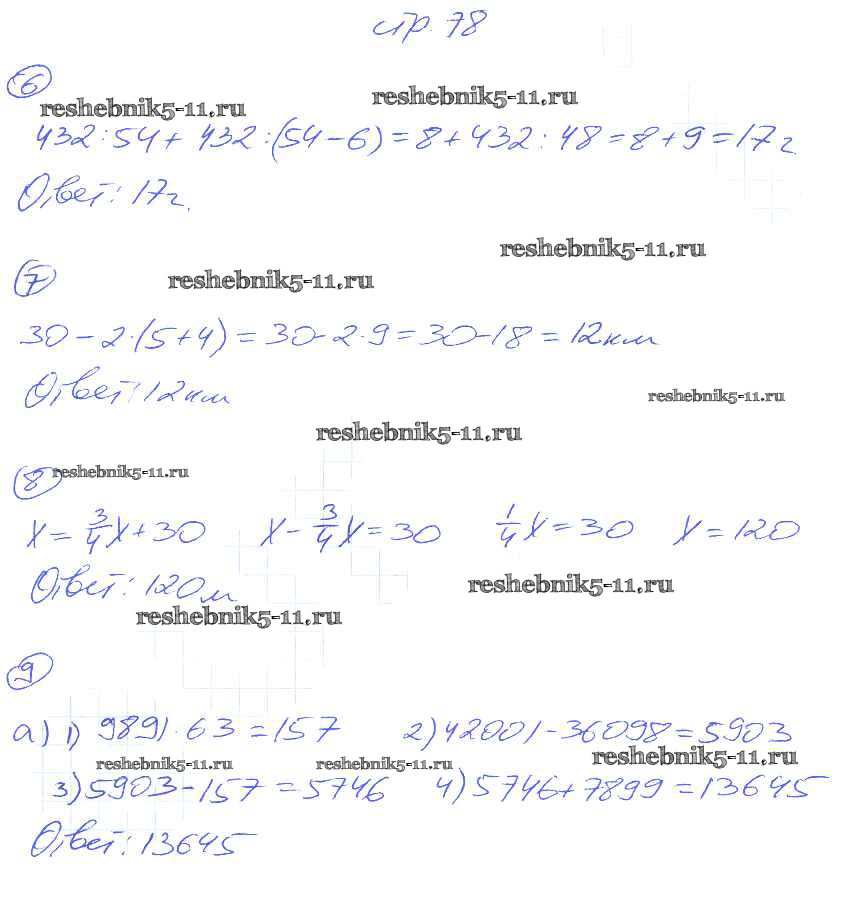 стр. 78
6
reshebnik5-11.ru reshebnik5-11.ru
432:54+ 432:(54-6)=8+432:48=8+9=17г.
Ответ: 17г.
reshebnik5-11.ru
7 reshebnik5-11.ru
30-2·(5+4)=30-2·9=30-18=12км
Ответ: 12км
reshebnik5-11.ru
reshebnik5-11.ru
8 reshebnik5-11.ru
x=3/4x+30 x-3/4x=30 1/4x=30 x=120
Ответ: 120м
reshebnik5-11.ru
reshebnik5-11.ru
9
а) 1) 9891·63=157 2)42001-36098=5903
reshebnik5-11.ru reshebnik5-11.ru reshebnik5-11.ru
3)5903-157=5746 4)5746+7899=13645
Ответ: 13645